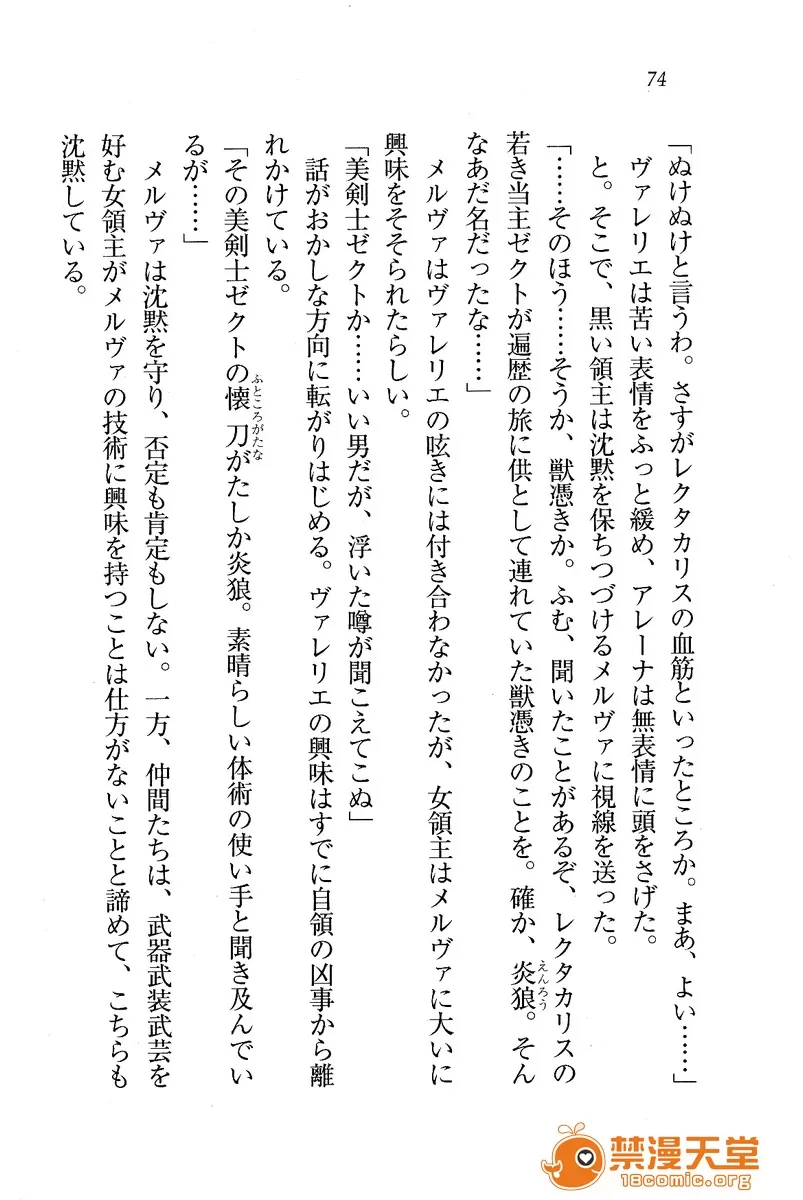 74
「ぬけぬけと言うわ。さすがレクタカリスの血筋といったところか。まあ、よい……」
ヴァレリエは苦い表情をふっと緩め、アレーナは無表情に頭をさげた。
と。そこで、黒い領主は沈黙を保ちつづけるメルヴァに視線を送った。
「……そのほう……そうか、獣憑きか。ふむ、聞いたことがあるぞ、レクタカリスの
若き当主ゼクトが遍歴の旅に供として連れていた獣憑きのことを。確か、炎狼。そん
えんろう
なあだ名だったな……」
メルヴァはヴァレリエの呟きには付き合わなかったが、女領主はメルヴァに大いに
興味をそそられたらしい。
「美剣士ゼクトか……いい男だが、浮いた噂が聞こえてこぬ」
話がおかしな方向に転がりはじめる。ヴァレリエの興味はすでに自領の凶事から離
れかけている。
「その美剣士ゼクトの懐刀がたしか炎狼。素晴らしい体術の使い手と聞き及んでい
ふところがたな
るが……」
メルヴァは沈黙を守り、否定も肯定もしない。一方、仲間たちは、武器武装武芸を
好む女領主がメルヴァの技術に興味を持つことは仕方がないことと諦めて、こちらも
沈黙している。
禁漫天堂
18comic.org